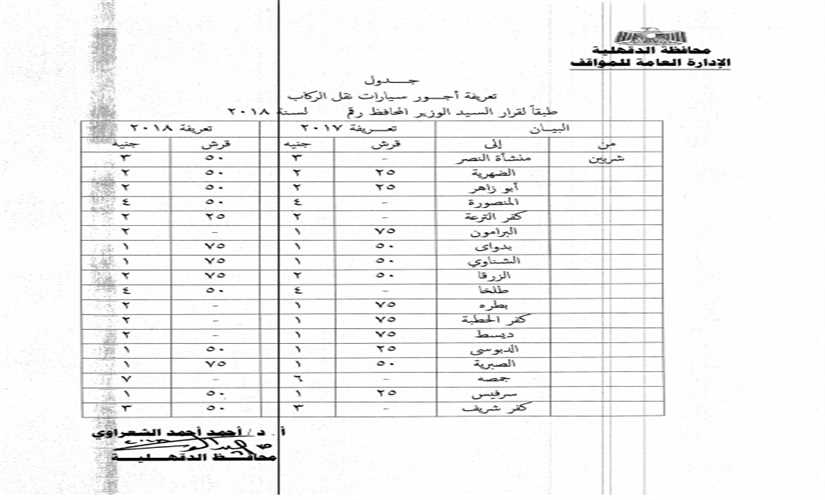 محافظة الدقهلية
الإدارة العامة للمواقف
جـــدول
تعريفة أجــور سيارات نقل الركاب
طبقاً لقرار السيد الوزير المحافظ رقم لسنة ٢٠١٨
البيـــان تعـــريفة ٢٠١٧ تعريفة ٢٠١٨
من إلى قرش جنيه قرش جنيه
شربين منشأة النصر - ٣ ٥٠ ٣
الضهرية ٢٥ ٢ ٥٠ ٢
أبو زاهر ٢٥ ٢ ٥٠ ٢
المنصورة - ٤ ٥٠ ٤
كفر الترعة - ٢ ٢٥ ٢
البرامون ٧٥ ١ - ٢
بدواى ٥٠ ١ ٧٥ ١
الشناوي ٥٠ ١ ٧٥ ١
الزرقا ٥٠ ٢ ٧٥ ٢
طلخا - ٤ ٥٠ ٤
بطره ٧٥ ١ - ٢
كفر الحطبة ٧٥ ١ - ٢
ديسط ٧٥ ١ - ٢
الدبوسى ٢٥ ١ ٥٠ ١
الصبرية ٥٠ ١ ٧٥ ١
جمصه - ٦ - ٧
سرفيس ٢٥ ١ ٥٠ ١
كفر شريف - ٣ ٥٠ ٣
أ . د / أحمد أحمد الشعراوي
محافظ الدقهلية